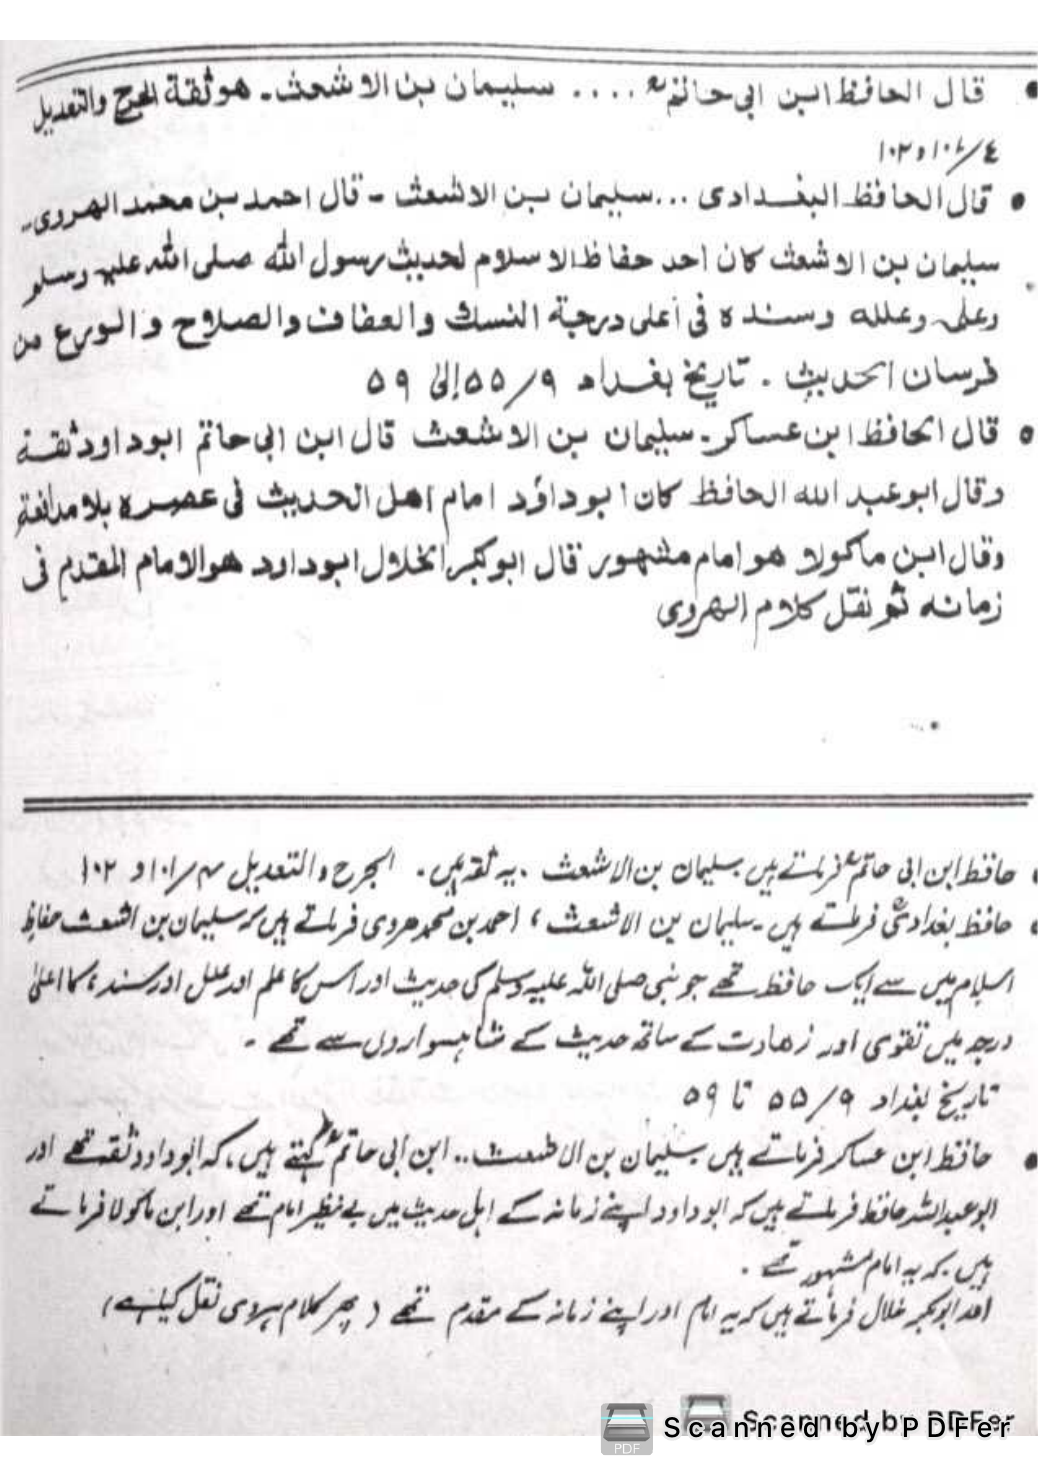 • قال الحافظ ابن ابى حاتمؒ .... سليمان بن الاشعث۔ هو ثقة الجرح والتعديل
٤/١٠١ و ١٠٢
• قال الحافظ البغدادى ...سليمان بن الاشعث - قال احمد بن محمد الهروى۔
سليمان بن الاشعث كان احد حفاظ الاسلام لحديث رسول الله صلى الله عليه وسلم
وعلمه وعلله وسنده فى اعلى درجة النسك والعفاف والصلاح والورع من
فرسان الحديث . تاريخ بغداد ٩/٥٥ إلى ٥٩
• قال الحافظ ابن عساكر۔ سليمان بن الاشعث قال ابن ابي حاتم ابوداود ثقة
وقال ابوعبد الله الحافظ كان ابوداؤد امام اهل الحديث فى عصره بلا مدافعة
وقال ابن ماكولا هو امام مشهور قال ابوبكر الخلال ابوداود هو الامام المقدم فى
زمانه ثم نقل كلام الهروى
• حافظ ابن ابی حاتمؒ فرماتے ہیں سلیمان بن الاشعث . یہ ثقہ ہیں . الجرح والتعدیل ۴/۱۰۱ و ۱۰۲
• حافظ بغدادیؒ فرماتے ہیں ۔ سلیمان بن الاشعث ، احمد بن محمد ھروی فرماتے ہیں کہ سلیمان بن اشعث حفاظِ
اسلام میں سے ایک حافظ تھے جو نبی صلی اللہ علیہ وسلم کی حدیث اور اس کا علم اور علل اور سند ، کا اعلیٰ
درجہ میں تقوی اور زھادت کے ساتھ حدیث کے شاہسواروں سے تھے ۔
تاریخ بغداد ۹/۵۵ تا ۵۹
• حافظ ابن عساکر فرماتے ہیں سلیمان بن الاشعث .. ابن ابی حاتمؒ کہتے ہیں ، کہ ابوداود ثقہ تھے اور
ابوعبداللہ حافظ فرماتے ہیں کہ ابوداود اپنے زمانہ کے اہل حدیث میں بے نظیر امام تھے اور ابن ماکولا فرماتے
ہیں . کہ یہ امام مشہور تھے .
اور ابوبکر خلال فرماتے ہیں کہ یہ امام اور اپنے زمانہ کے مقدم تھے ( پھر کلام ہروی نقل کیا ہے )
Scanned by PDFer
Scanned by PDFer